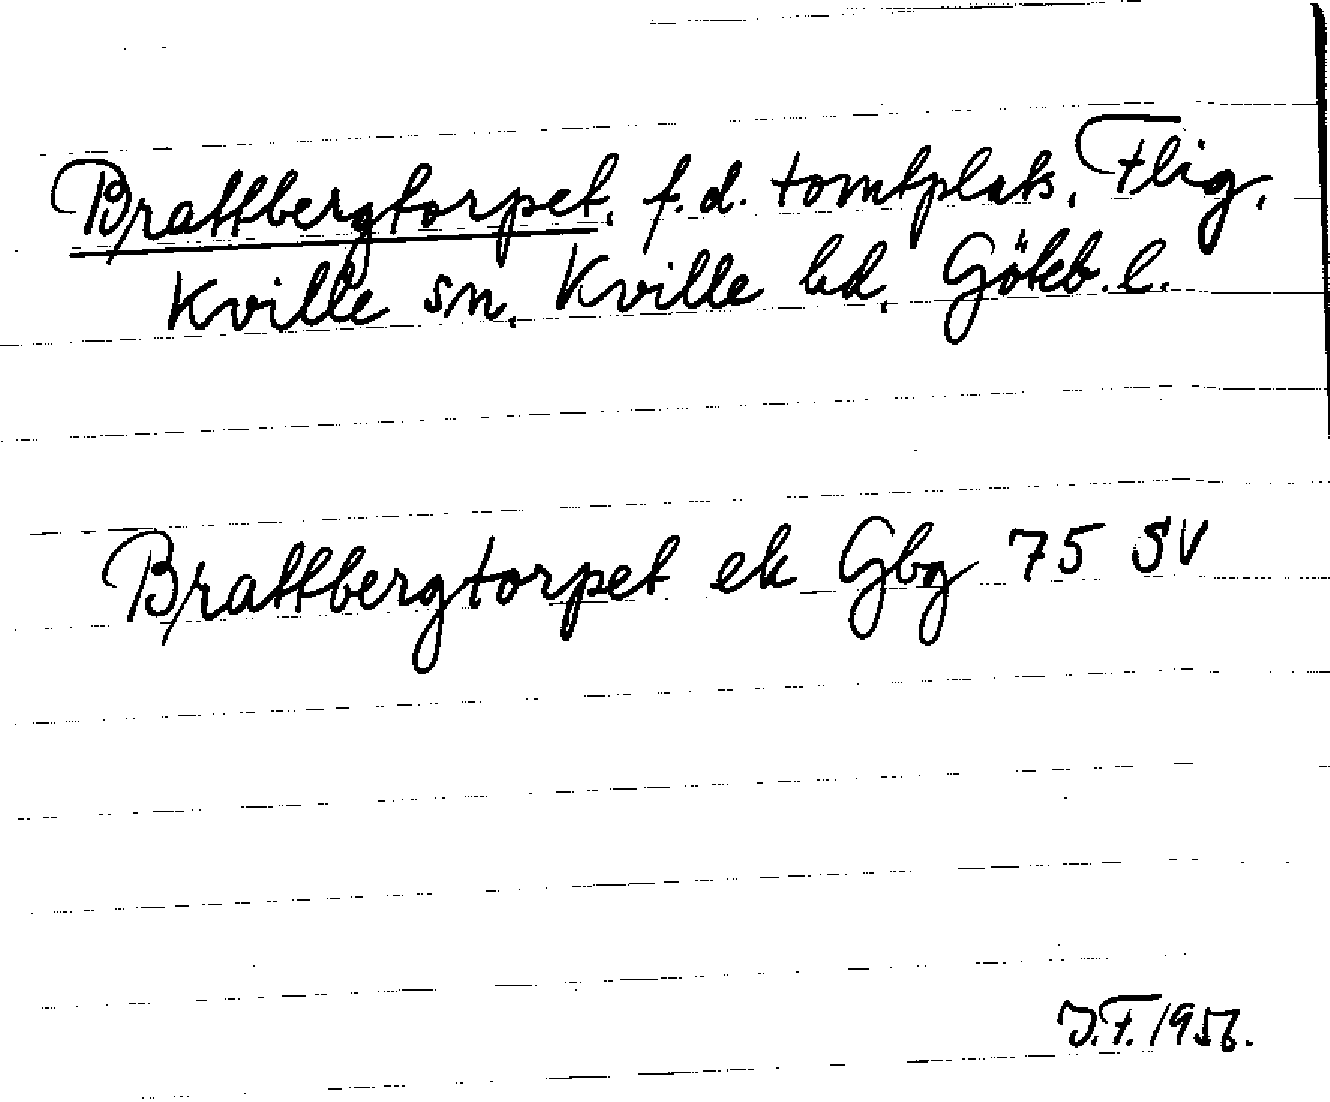 Brattbergtorpet, f.d. tomtplats, Flig,
Kville sn, Kville hd, Göteb. l.
Brattbergtorpet ek Gbg 75 SV
J.F. 1956.